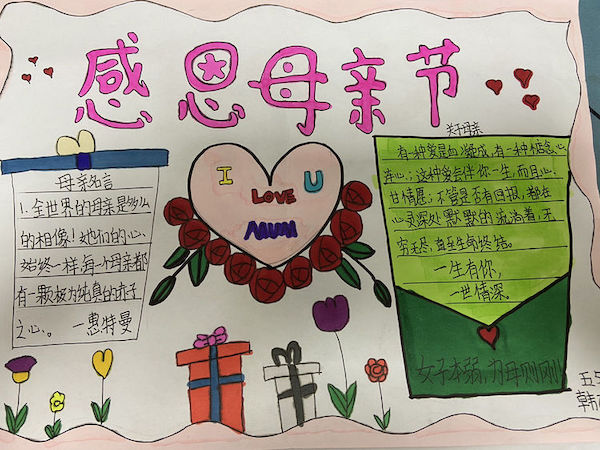 感恩母亲节
母亲名言
1. 全世界的母亲是多么
的相像！她们的心
始终一样，每一个母亲都
有一颗极为纯真的赤子
之心。 —惠特曼
I
LOVE
U
MUM
关于母亲
有一种爱是血凝成，有一种惦念心
连心；这种爱会伴你一生，而且心
甘情愿；不管是否有回报，都在
心灵深处默默的流淌着，无
穷无尽，直至生命终结。
一生有你，
一世情深。
女子本弱，为母则刚
五5
韩